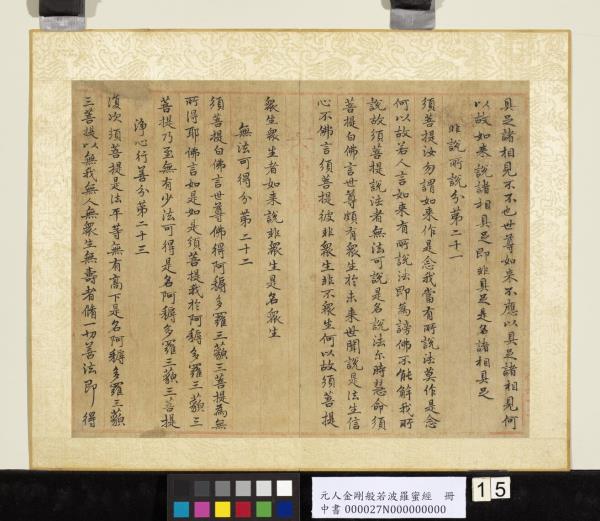 具足諸相見不不也世尊如來不應以具足諸相見何
以故如來說諸相具足即非具足是名諸相具足
非說所說分第二十一
須菩提汝勿謂如來作是念我當有所說法莫作是念
何以故若人言如來有所說法即為謗佛不能解我所
說故須菩提說法者無法可說是名說法尒時慧命須
菩提白佛言世尊頗有衆生於未來世聞說是法生信
心不佛言須菩提彼非衆生非不衆生何以故須菩提
衆生衆生者如來說非衆生是名衆生
無法可得分第二十二
須菩提白佛言世尊佛得阿耨多羅三藐三菩提為無
所得耶佛言如是如是須菩提我於阿耨多羅三藐三
菩提乃至無有少法可得是名阿耨多羅三藐三菩提
淨心行善分第二十三
復次須菩提是法平等無有高下是名阿耨多羅三藐
三菩提以無我無人無衆生無壽者脩一切善法即得
元人金剛般若波羅蜜經 冊
中書 000027N000000000
15